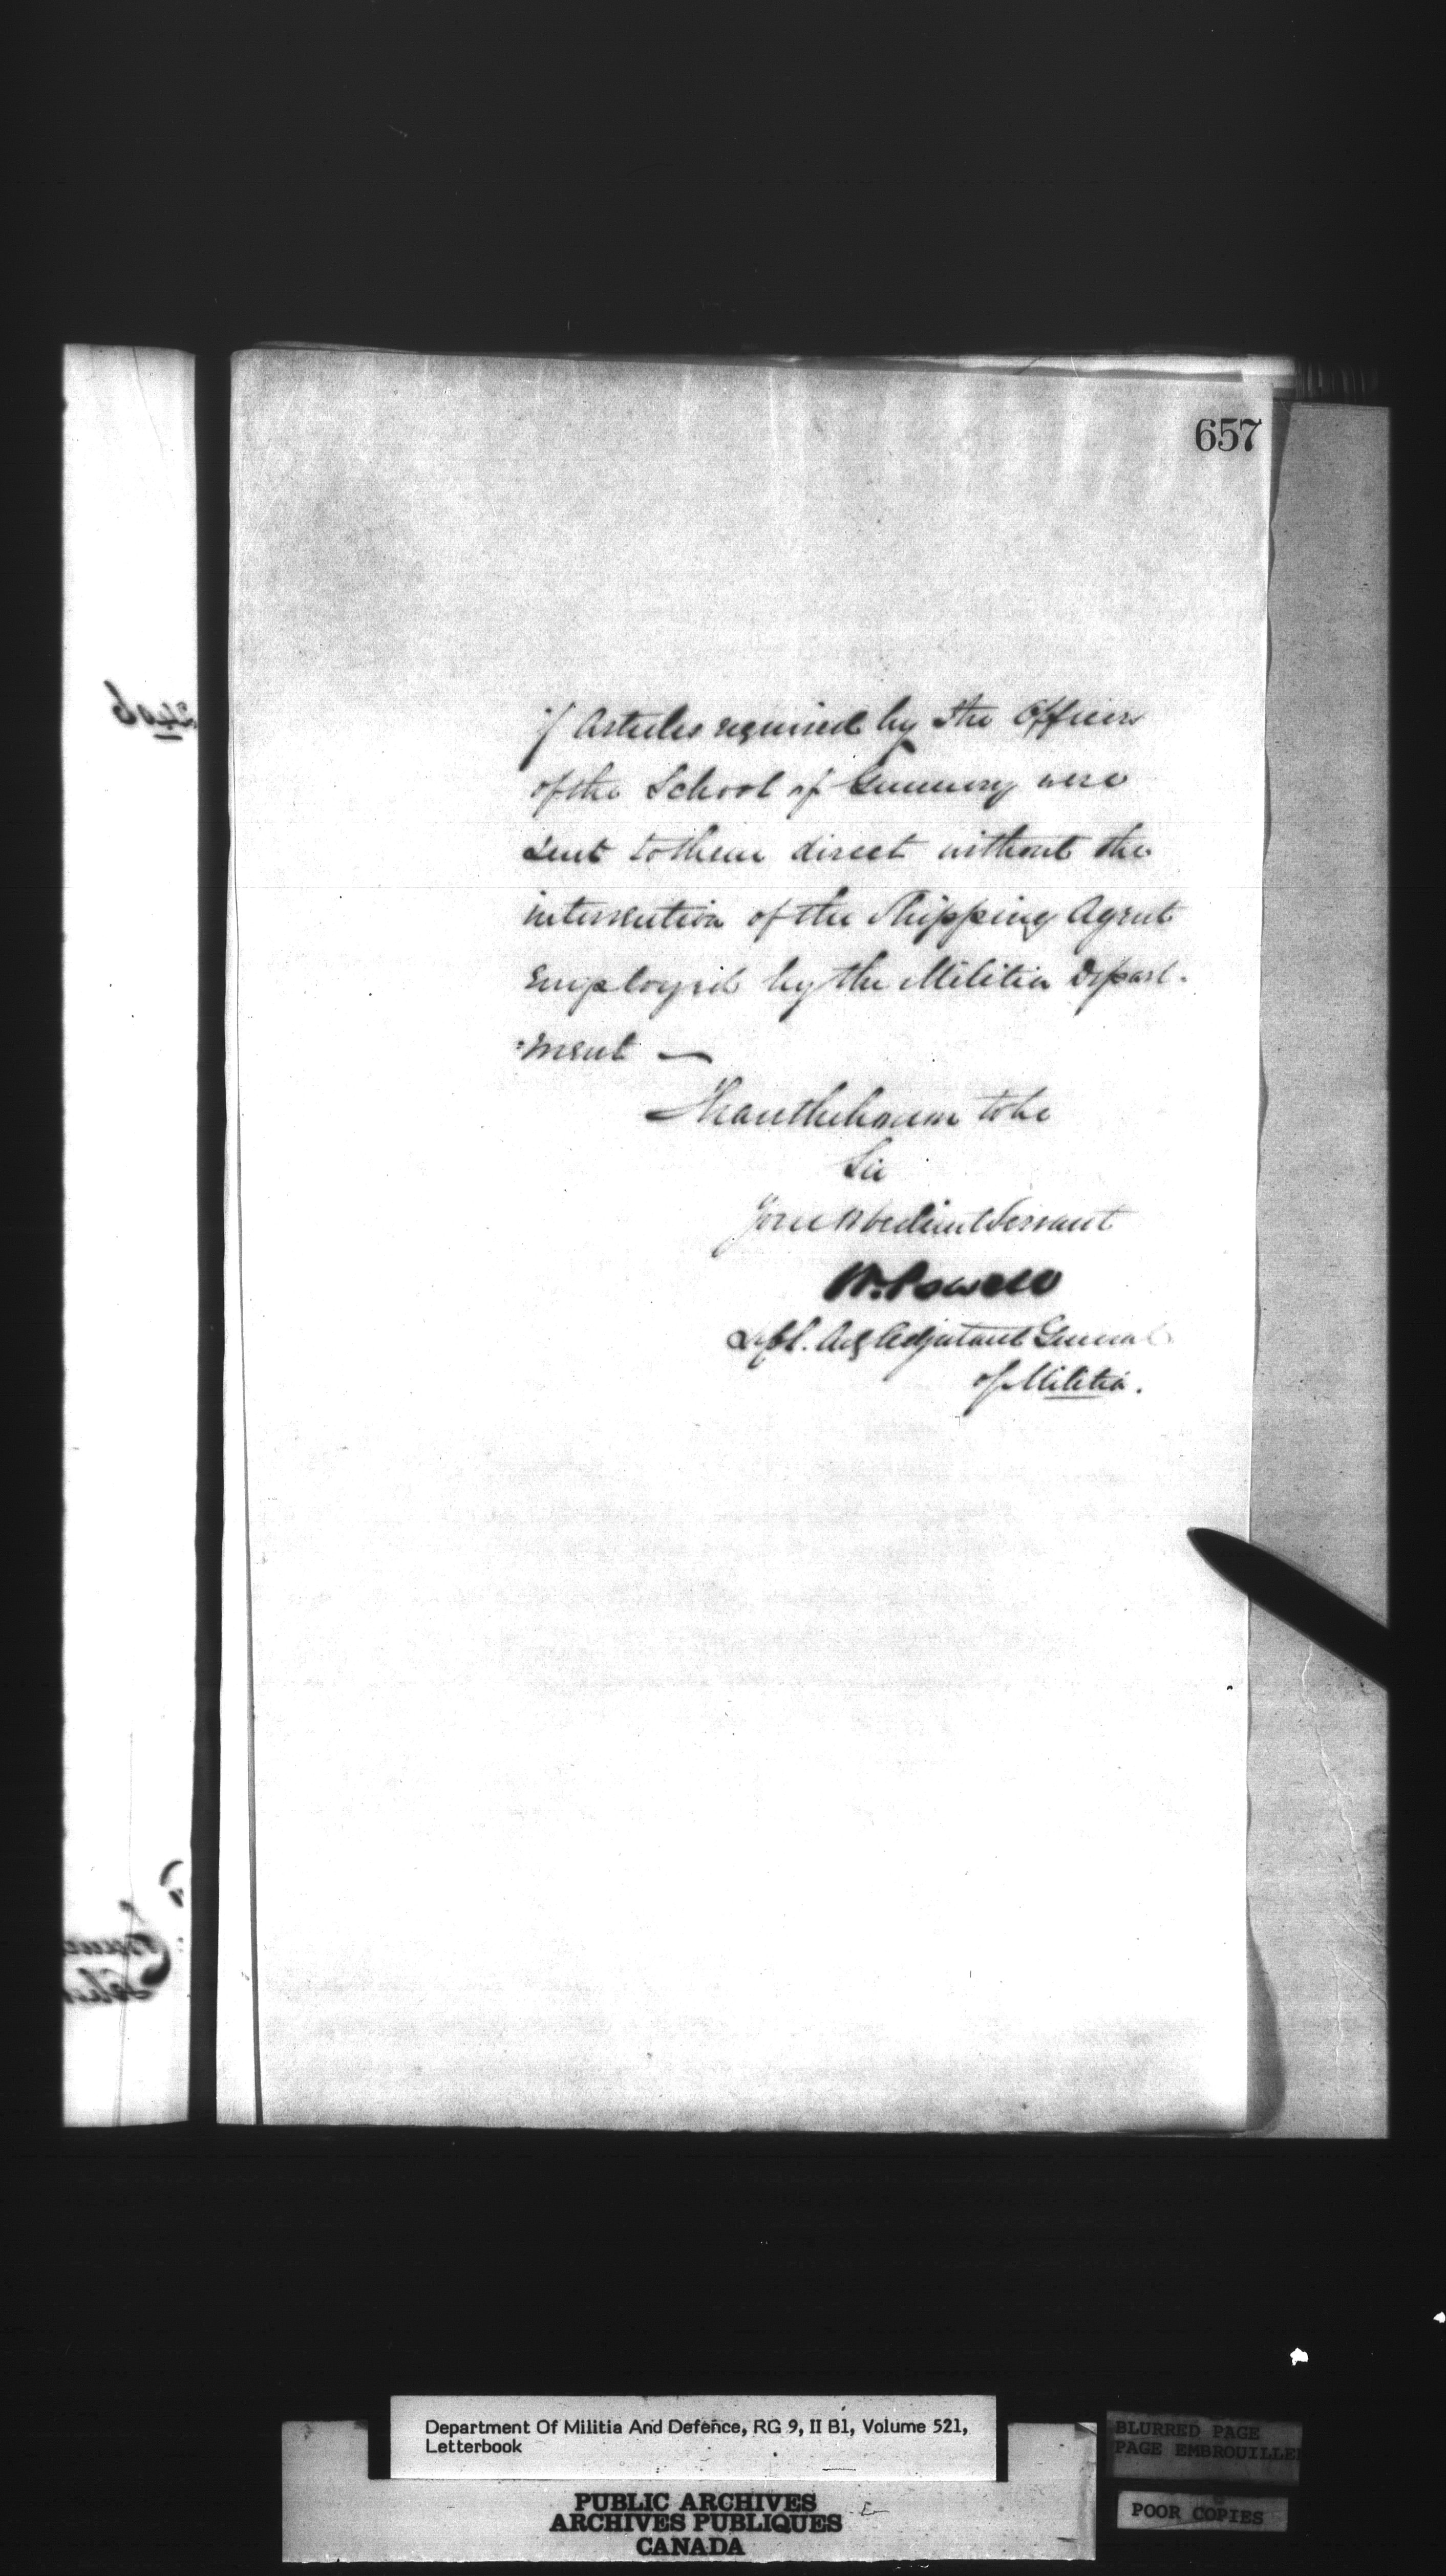 657
if Articles required by the Officers
of the School of Gunnery were
sent to them direct without the
intervention of the Shipping Agent
Employed by the Militia Depart-
:ment —
I have the honor to be
Sir
Your Obedient Servant
W. Powell
Lt Col. Actg Adjutant General
of Militia.
2406
Department Of Militia And Defence, RG 9, II B1, Volume 521,
Letterbook
PUBLIC ARCHIVES
ARCHIVES PUBLIQUES
CANADA
BLURRED PAGE
PAGE EMBROUILLE
POOR COPIES